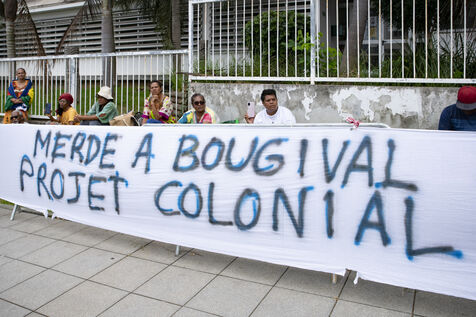 MERDE A BOUGIVAL
PROJET COLONIAL